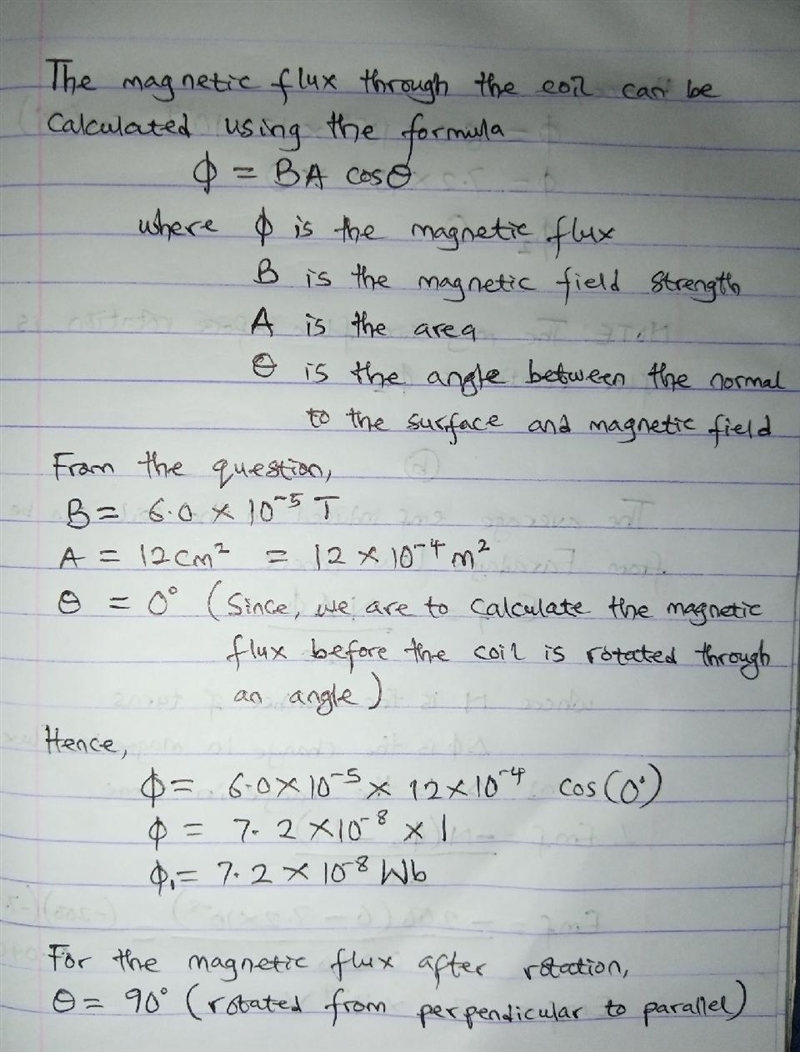 The magnetic flux through the coil can be
Calculated using the formula
ϕ = BA cosθ
where ϕ is the magnetic flux
B is the magnetic field strength
A is the area
θ is the angle between the normal
to the surface and magnetic field
From the question,
B = 6.0 × 10⁻⁵ T
A = 12cm² = 12 × 10⁻⁴ m²
θ = 0° (Since, we are to calculate the magnetic
flux before the coil is rotated through
an angle)
Hence,
ϕ = 6.0×10⁻⁵ × 12×10⁻⁴ cos(0°)
ϕ = 7.2 ×10⁻⁸ × 1
ϕ₁ = 7.2 × 10⁻⁸ Wb
For the magnetic flux after rotation,
θ = 90° (rotated from perpendicular to parallel)